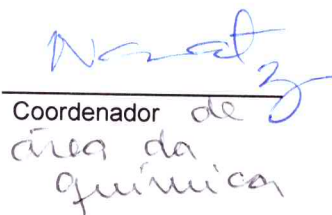 Coordenador de
área da
química